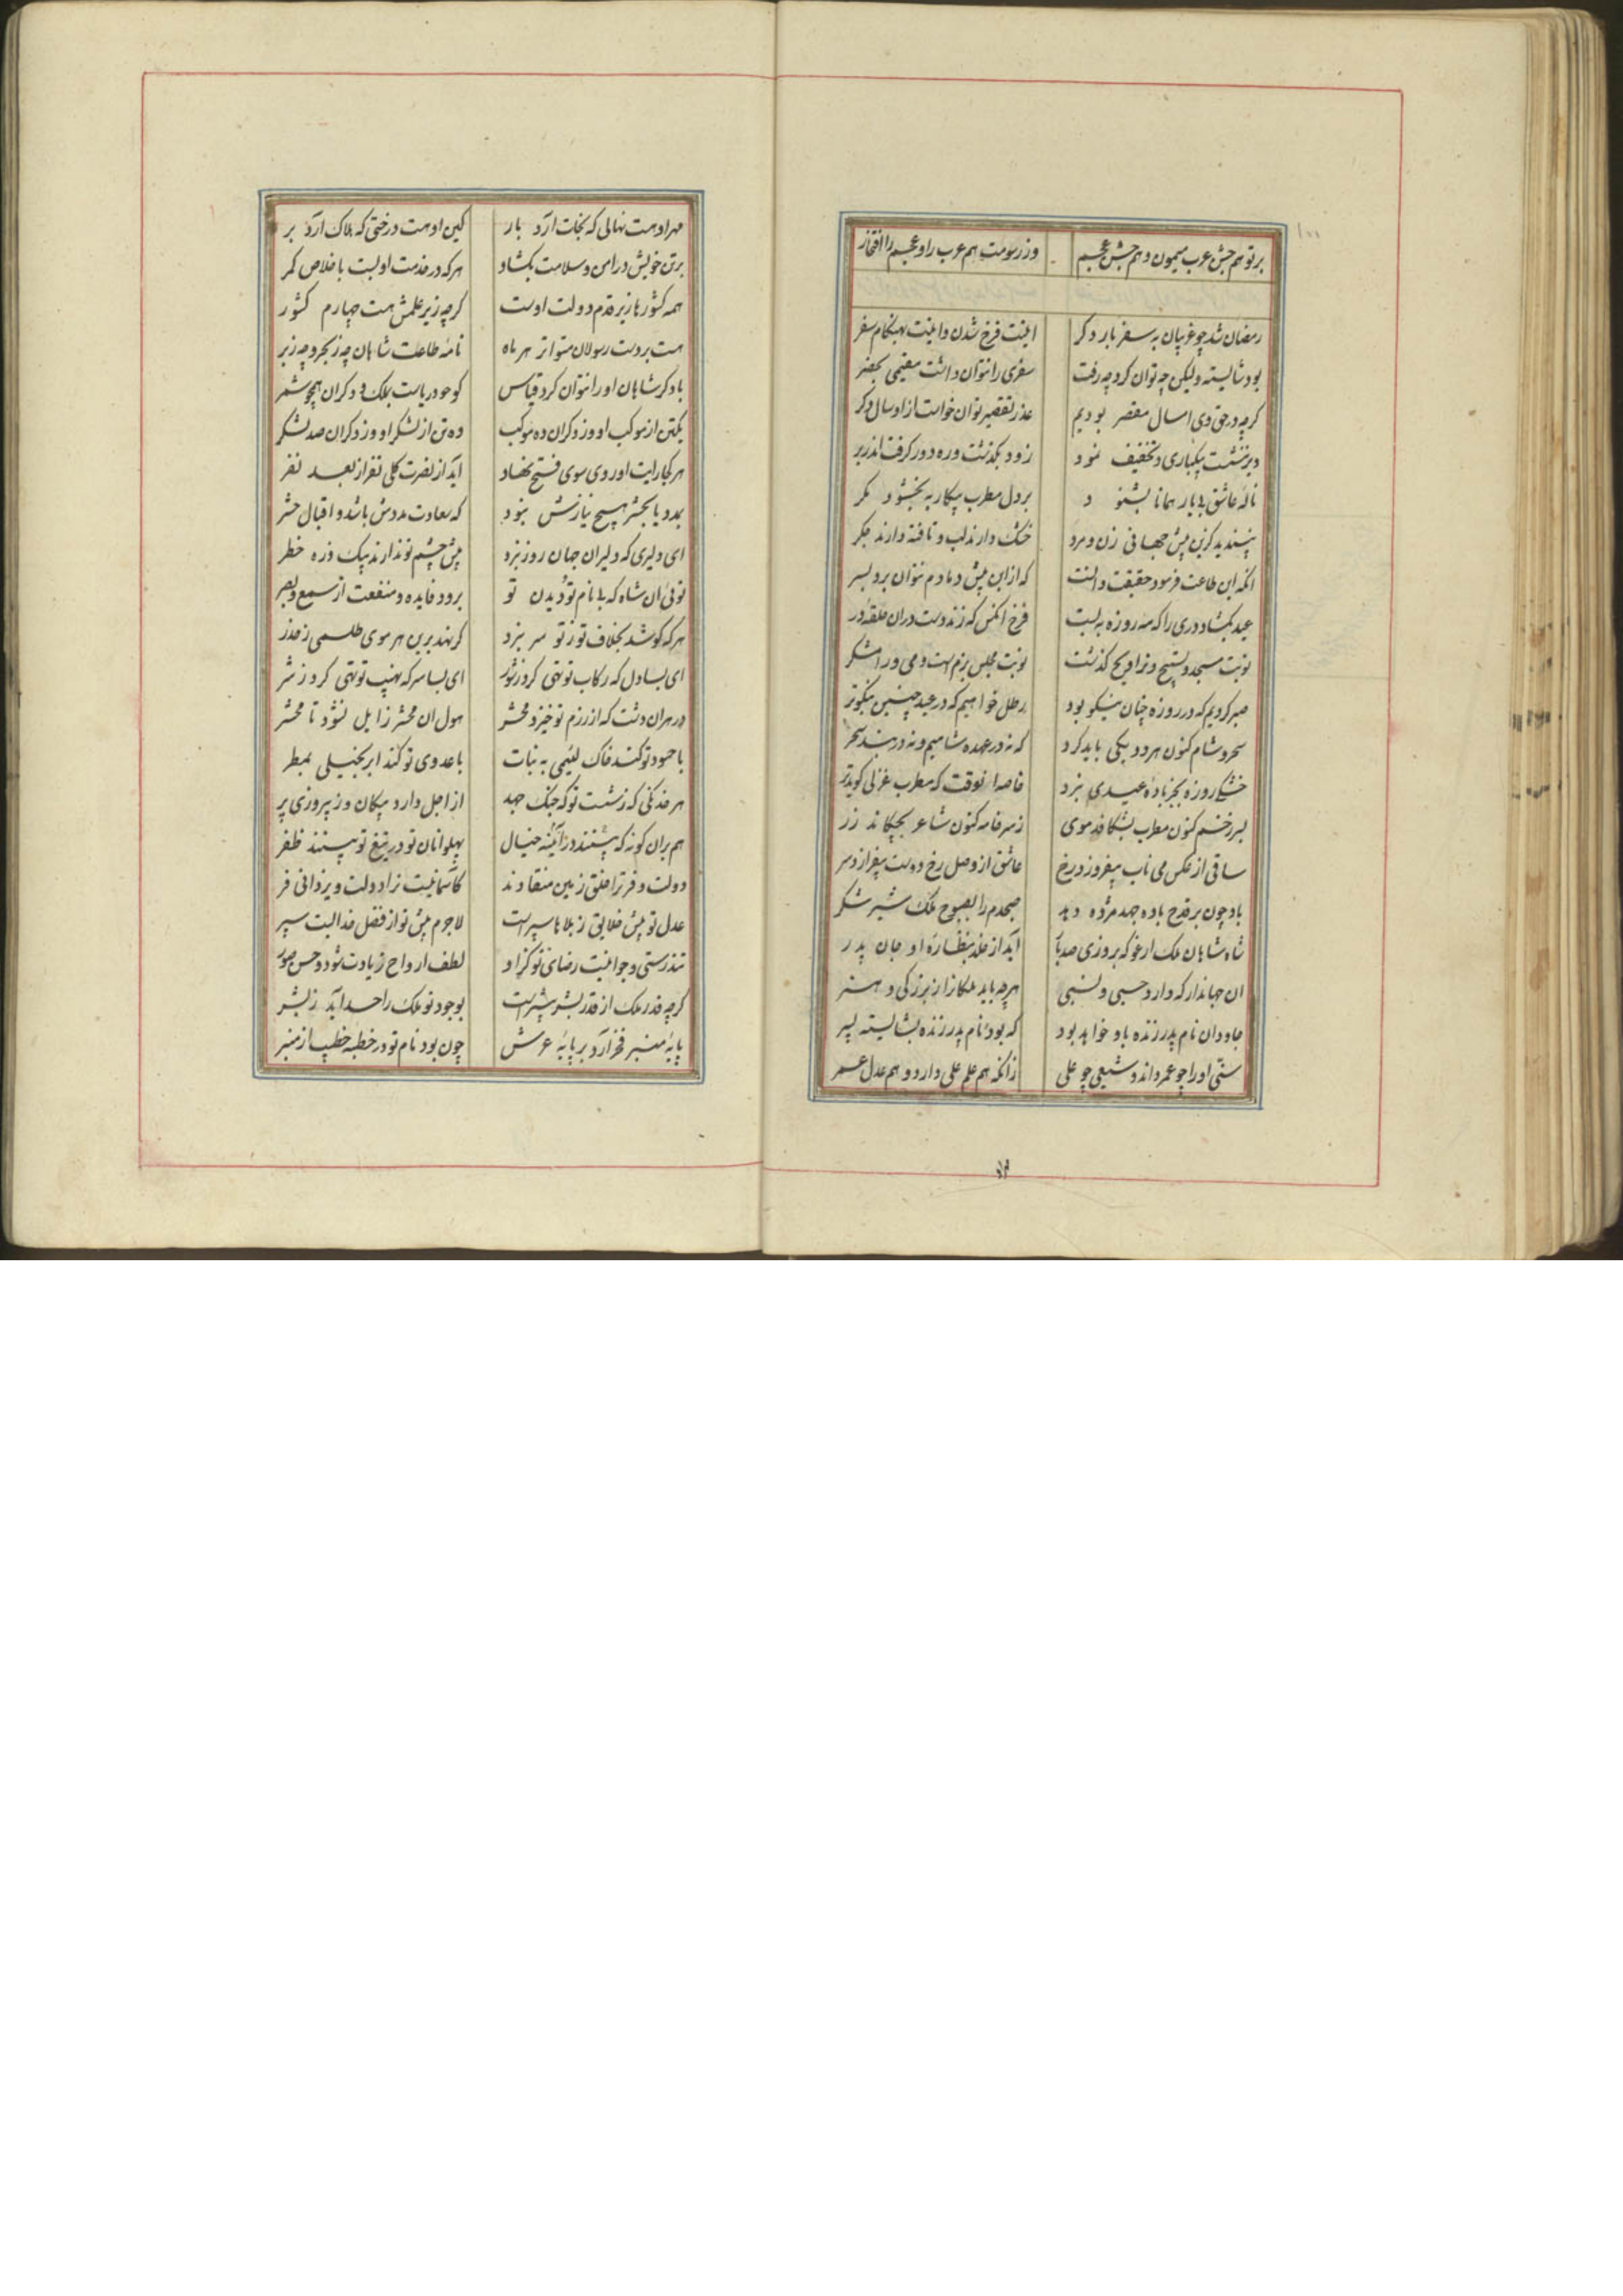 ۱۰۰
بر تو هم جشن عرب میمون و هم جشن عجم وز رسومت هم عرب را و عجم را افتخار
رمضان شد چو غریبان به سفر بار دگر اینت فرخ شدن و اینت بهنگام سفر
بود شایسته ولیکن چه توان کرد چو رفت سفری را نتوان داشت مقیمی بحضر
گرچه در حق وی امسال مقصر بودیم عذر تقصیر توان خواست ازو سال دگر
دیر ننشست بیکباری و تخفیف نمود زود بگذشت و ره دور گرفت اندر بر
ناله عاشق بیمار همانا بشنو د بر دل مطرب بیکار ببخشود مگر
نپسندید کزین پیش جهانی زن و مرد خشک دارند لب و تافته دارند جگر
آنکه این طاعت فرمود حقیقت دانست که ازین بیش دمادم نتوان برد بسر
عید بگشاد دری را که مه روزه ببست فرخ آنکس که زند دست در آن حلقه در
نوبت مسجد و تسبیح و تراویح گذشت نوبت مجلس بزم است و می و رامشگر
صبر کردیم که در روزه چنان نیکو بود رطل خواهیم که در عید چنین نیکوتر
سحر و شام کنون هر دو یکی باید کرد که نه در عهده شامیم و نه در بند سحر
خشکی روزه بجز باده عیدی نبرد خاصه آنوقت که مطرب غزلی گوید تر
بسر زخم کنون مطرب بشکافد موی ز سر خامه کنون شاعر بچکاند زر
ساقی از عکس می ناب بیفروزد رخ عاشق از وصل رخ دوست بیفرازد سر
باد چون بر قدح باده جهد مژده دهد صبحدم را بصبوح ملک شیر شکر
شاه شاهان ملک ارغو که بروزی صد بار آید از خلد بنظاره او جان پدر
آن جهاندار که دارد حسبی و نسبی هرچه باید ملکان را ز بزرگی و هنر
جاودان نام پدر زنده بدو خواهد بود که بود نام پدر زنده بشایسته پسر
سنی او را چو عمر داند و شیعی چو علی زانکه هم علم علی دارد و هم عدل عمر
مهر او هست نهالی که نجات آرد بار کین او هست درختی که هلاک آرد بر
بر تن خویش در امن و سلامت بگشاد هر که در خدمت او بست باخلاص کمر
همه کشورها زیر قدم دولت اوست گرچه زیر علمش هست چهارم کشور
هست بر دست رسولان متواتر هر ماه نامه طاعت شاهان چه ز بحر و چه ز بر
با دگر شاهان او را نتوان کرد قیاس کو چو دریاست بملک و دگران همچو شمر
یکتن از موکب او وز دگران ده موکب ده تن از لشکر او وز دگران صد لشکر
هر کجا رایت او روی سوی فتح نهاد آید از نصرت کلی نفر از بعد نفر
بمدد یا بحشر هیچ نیازش نبود که سعادت مددش باشد و اقبال حشر
ای دلیری که دلیران جهان روز نبرد پیش چشم تو ندارند بیک ذره خطر
توئی آن شاه که بی نام تو و دیدن تو برود فایده و منفعت از سمع و بصر
هر که کوشد بخلاف تو ز تو سر نبرد گر نهد بر بن هر موی طلسمی ز حذر
ای بسا دل که رکاب تو تهی کرد ز شور ای بسا سر که نهیب تو تهی کرد ز شر
در هر آن دشت که از رزم تو خیزد محشر هول آن محشر زایل نشود تا محشر
با حسود تو کند خاک لئیمی به نبات با عدوی تو کند ابر بخیلی بمطر
هر خدنگی که ز شست تو گه جنگ جهد از اجل دارد پیکان و ز پیروزی پر
هم بر آن گونه که بینند در آئینه خیال پهلوانان تو در تیغ تو بینند ظفر
دولت و فر ترا خلق زمین منقادند کآسمانیست ترا دولت و یزدانی فر
عدل تو پیش خلایق ز بلاها سپر است لاجرم پیش تو از فضل خدا است سپر
تندرستی و جوانیست رضای تو کز او لطف ارواح زیادت شود و حسن صور
گرچه قدر ملک از قدر بشر بیشتر است بوجود تو ملک را حسد آید ز بشر
پایه منبر فخر آرد بر پایه عرش چون بود نام تو در خطبه خطیب از منبر